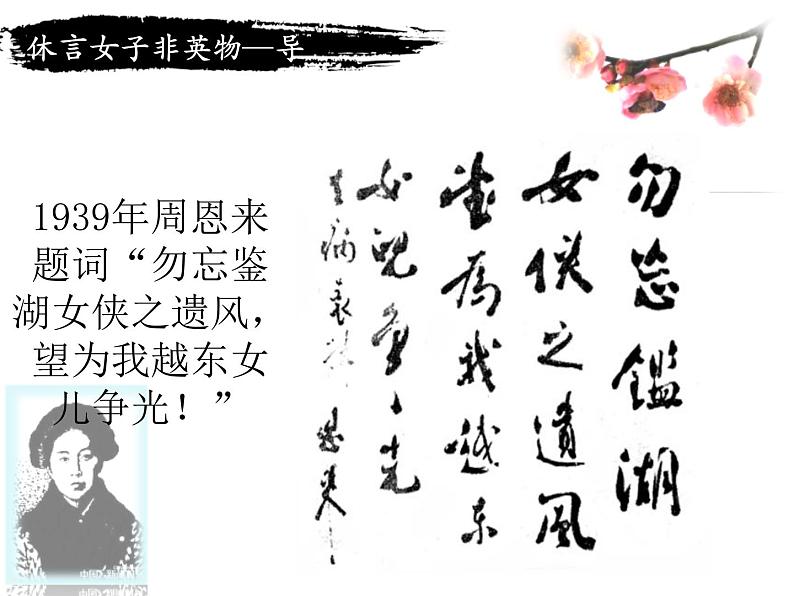 休言女子非英物—导
1939年周恩来
题词“勿忘鉴
湖女侠之遗风，
望为我越东女
儿争光！”
勿忘鑑湖
女俠之遺風
望為我越東
女兒爭光
恩来
中国